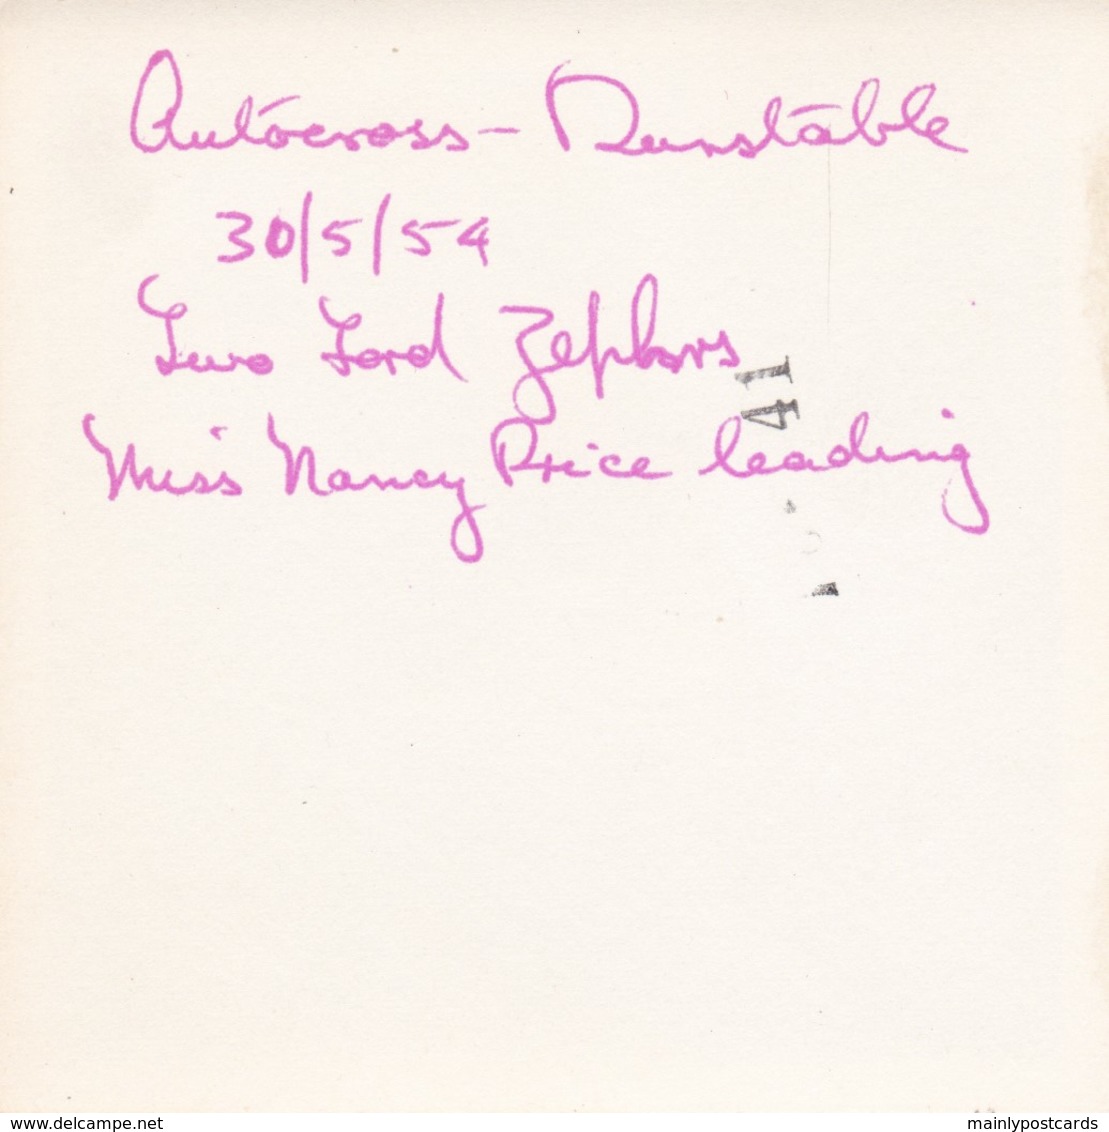 Autocross - Dunstable
30/5/54
Two Ford Zephors
Miss Nancy Price leading
41
delcampe.net
mainlypostcards